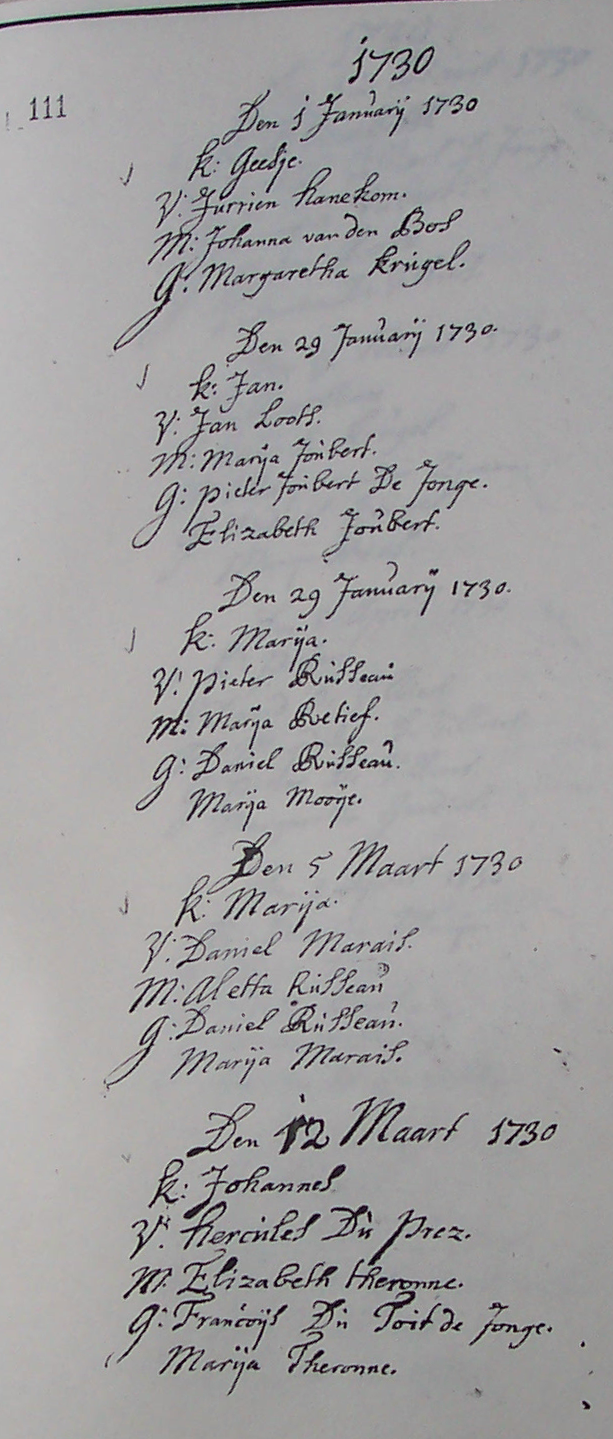 1730
111
Den 1 Januarij 1730
k: Geesje.
V: Jurrien hanekom.
M: Johanna van den Bos
G: Margaretha krúgel.
Den 29 Januarij 1730.
k: Jan.
V: Jan Loots.
M: Marija Joúbert.
G: pieter Joúbert De Jonge.
Elizabeth Joúbert.
Den 29 Januarij 1730.
k: Marija.
V: pieter Rússeaú
M: Marija Retief.
G: Daniel Rússeaú.
Marija Mooije.
Den 5 Maart 1730
k: Marija.
V: Daniel Marais.
M: Aletta Rússeaú
G: Daniel Rússeaú.
Marija Marais.
Den 12 Maart 1730
k: Johannes
V: hercúles Dú prez.
M: Elizabeth theronne.
G: Francoijs Dú Toit de Jonge.
Marija Theronne.